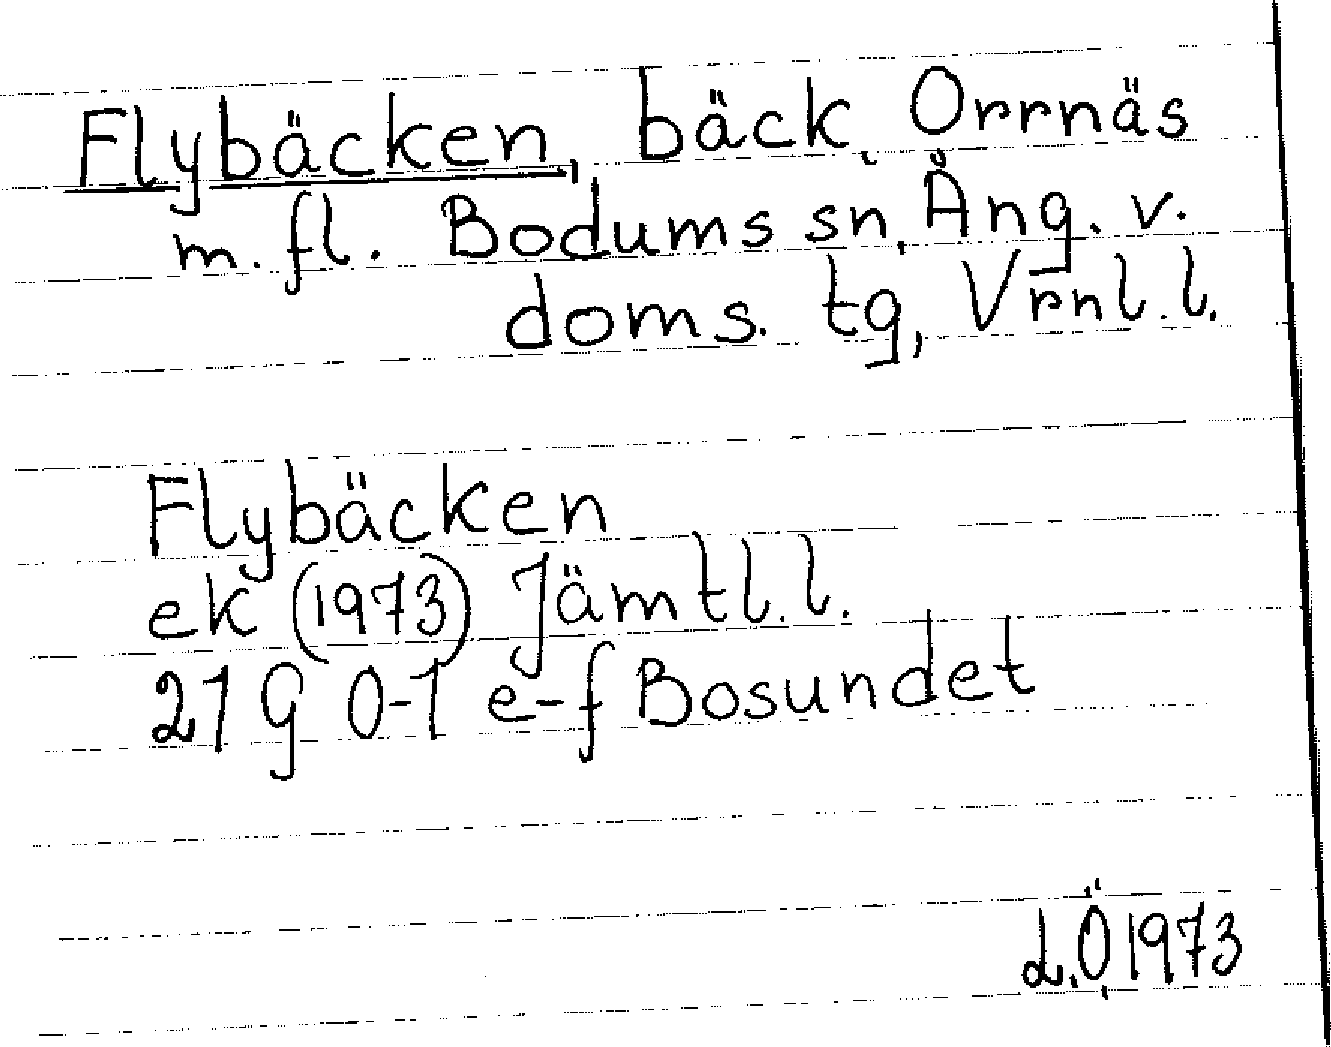 Flybäcken, bäck, Orrnäs
m. fl. Bodums sn, Ång. v.
doms. tg, Vrnl. l.
Flybäcken
ek (1973) Jämtl. l.
21 G 0-1 e-f Bosundet
L.Ö, 1973